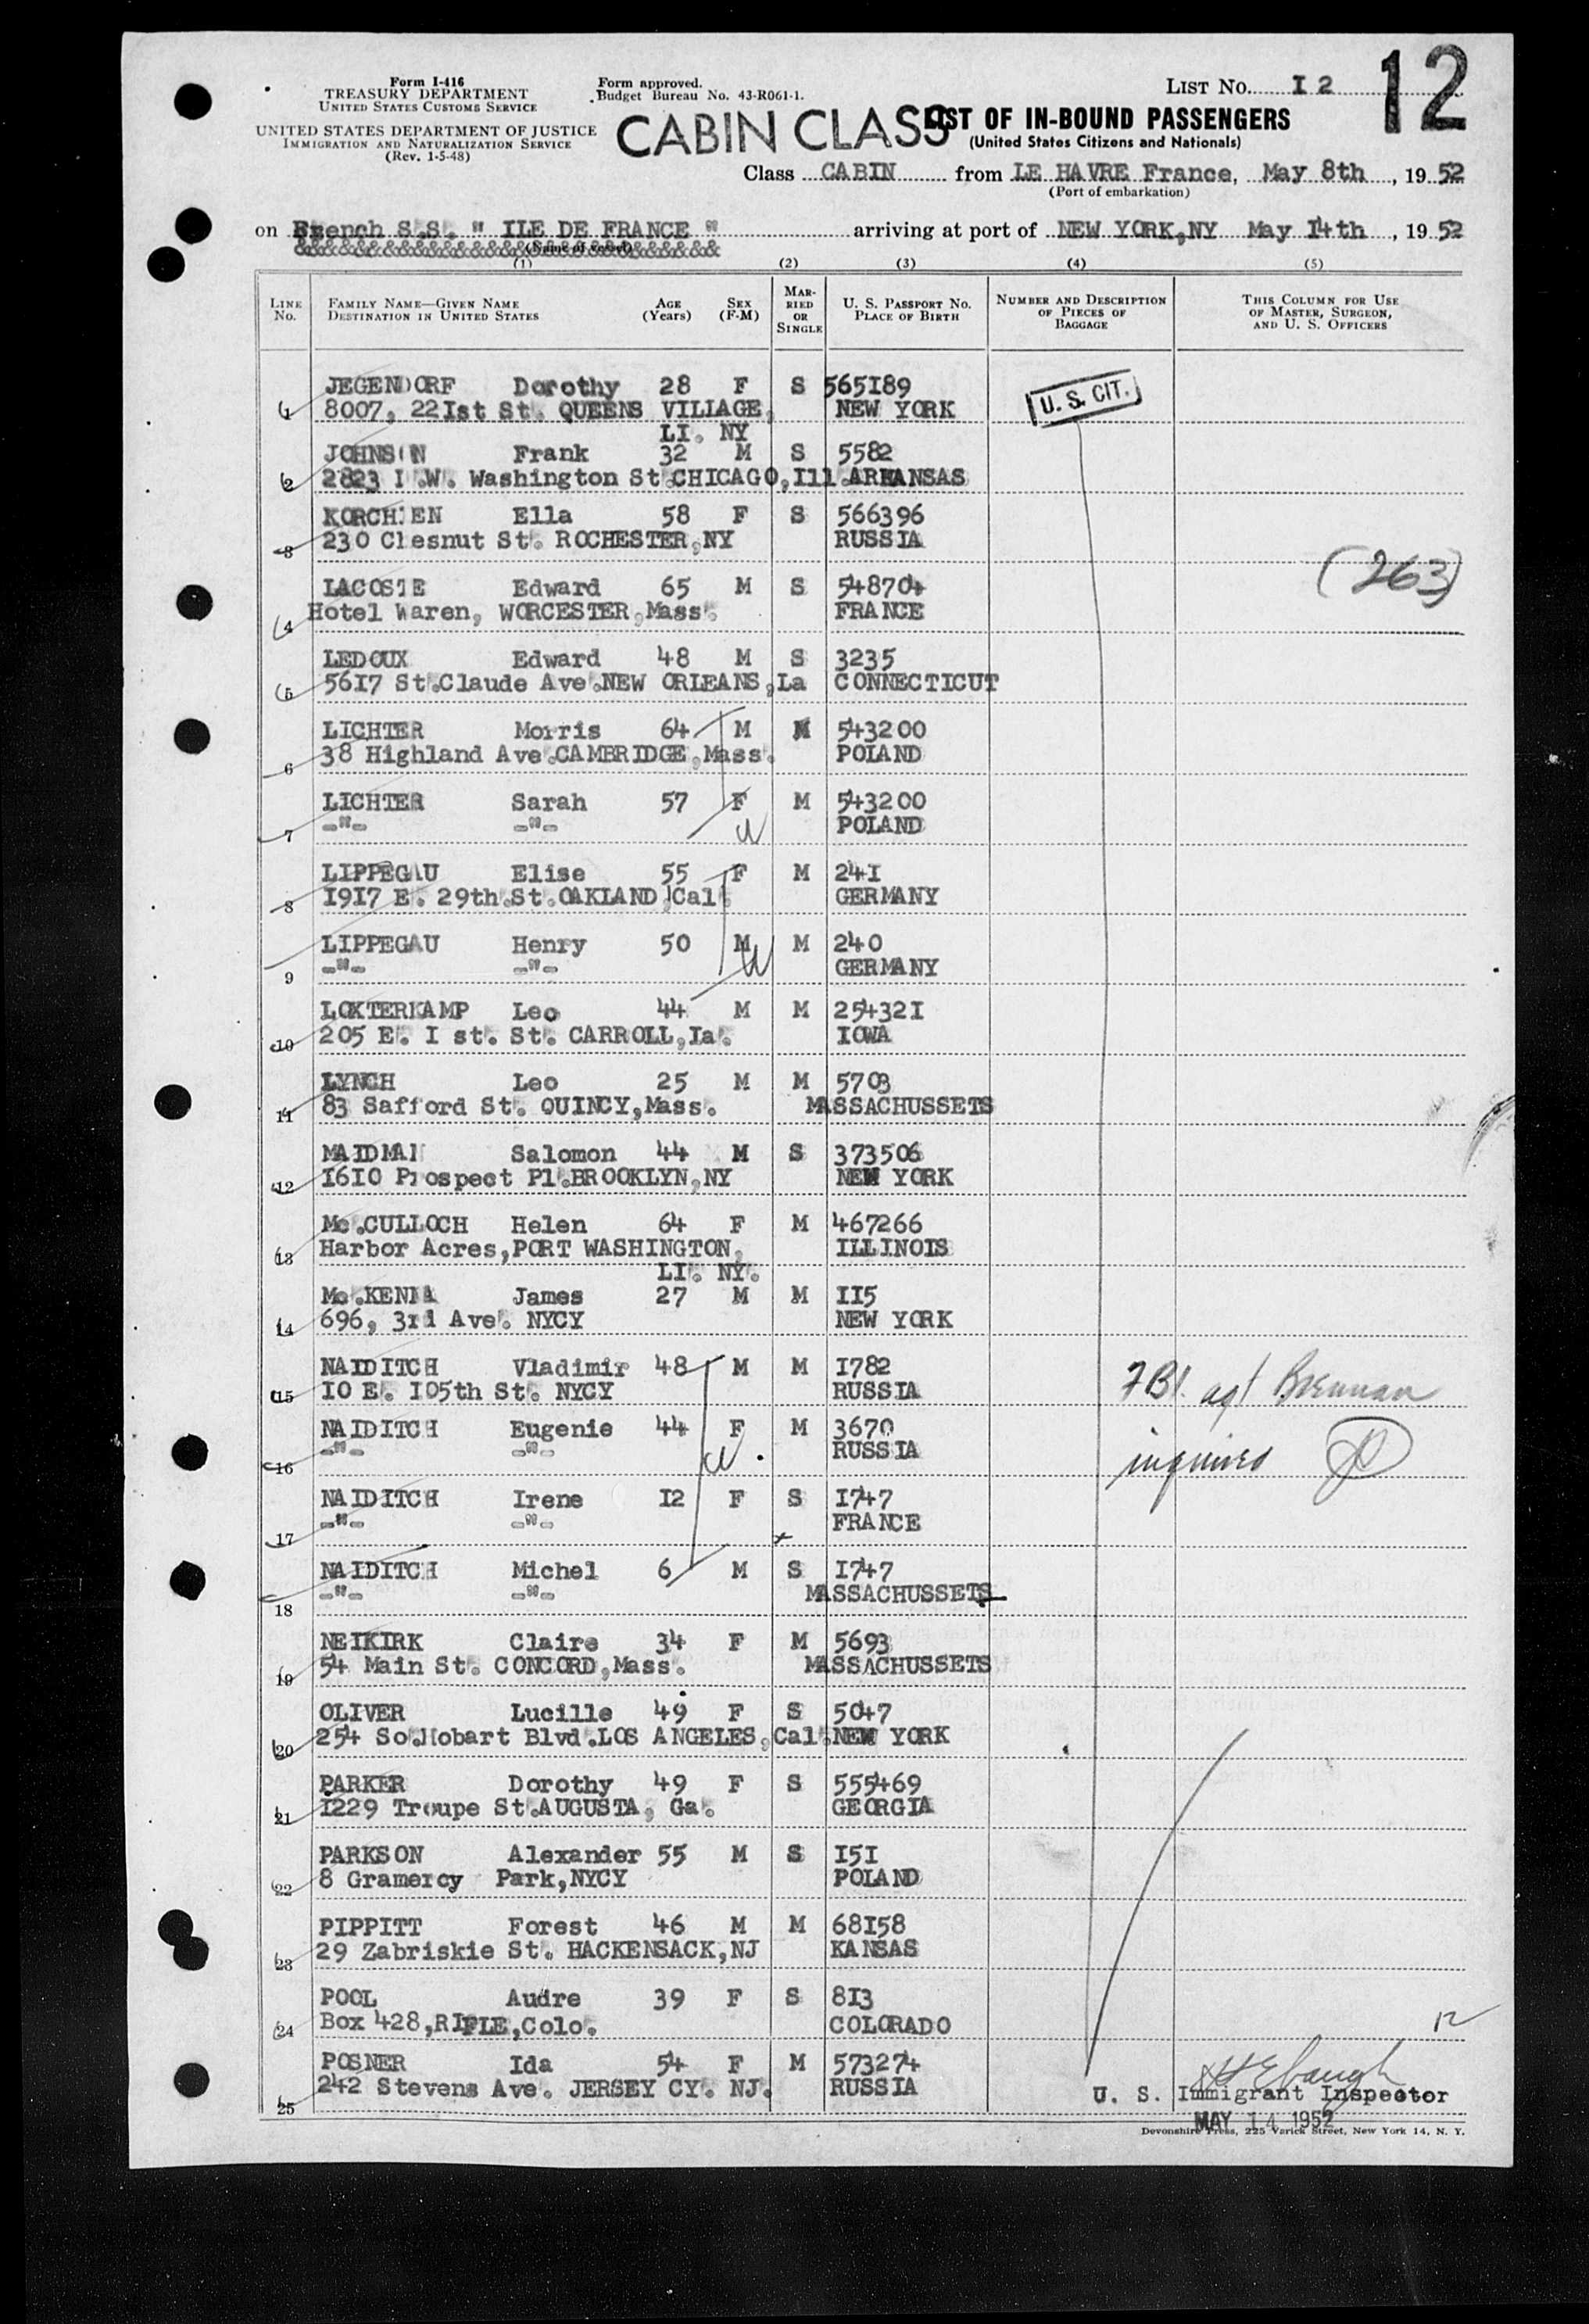 12
Form I-416
TREASURY DEPARTMENT
UNITED STATES CUSTOMS SERVICE
UNITED STATES DEPARTMENT OF JUSTICE
IMMIGRATION AND NATURALIZATION SERVICE
(Rev. 1-5-48)
Form approved.
Budget Bureau No. 43-R061-1.
LIST No. I2
CABIN CLASS
LIST OF IN-BOUND PASSENGERS
(United States Citizens and Nationals)
Class CABIN from LE HAVRE France, May 8th, 1952
(Port of embarkation)
on French S.S. " ILE DE FRANCE " arriving at port of NEW YORK,NY May I4th, 1952
(Name of vessel)
(1) (2) (3) (4) (5)
LINE No. FAMILY NAME—GIVEN NAME DESTINATION IN UNITED STATES AGE (Years) SEX (F-M) MARRIED OR SINGLE U. S. PASSPORT No. PLACE OF BIRTH NUMBER AND DESCRIPTION OF PIECES OF BAGGAGE THIS COLUMN FOR USE OF MASTER, SURGEON, AND U. S. OFFICERS
JEGENDORF Dorothy 28 F S 565I89
1 8007, 22Ist St. QUEENS VILLAGE, NEW YORK
LI. NY
U. S. CIT.
JOHNSON Frank 32 M S 5582
2 2823 I.W. Washington St.CHICAGO,Ill.ARKANSAS
KORCHIEN Ella 58 F S 566396
3 230 Clesnut St. ROCHESTER,NY RUSSIA
(263)
LACOSTE Edward 65 M S 548704
4 Hotel Waren, WORCESTER,Mass. FRANCE
LEDOUX Edward 48 M S 3235
5 56I7 St.Claude Ave.NEW ORLEANS,La CONNECTICUT
LICHTER Morris 64 M M 543200
6 38 Highland Ave.CAMBRIDGE,Mass. POLAND
LICHTER Sarah 57 F M 543200
7 -"- -"- POLAND
LIPPEGAU Elise 55 F M 24I
8 I9I7 E. 29th.St.OAKLAND,Cal. GERMANY
LIPPEGAU Henry 50 M M 240
9 -"- -"- GERMANY
LOXTERKAMP Leo 44 M M 25432I
10 205 E. I st. St. CARROLL,Ia. IOWA
LYNCH Leo 25 M M 5703
11 83 Safford St. QUINCY,Mass. MASSACHUSSETS
MAIDMAN Salomon 44 M S 373506
12 I6I0 Prospect Pl.BROOKLYN,NY NEW YORK
Mc.CULLOCH Helen 64 F M 467266
13 Harbor Acres,PORT WASHINGTON, ILLINOIS
LI. NY.
Mc.KENNA James 27 M M II5
14 696, 3rd Ave. NYCY NEW YORK
NAIDITCH Vladimir 48 M M I782
15 I0 E. I05th St. NYCY RUSSIA
FBI. agt Brennan
NAIDITCH Eugenie 44 F M 3670
16 -"- -"- RUSSIA
inquires
NAIDITCH Irene I2 F S I747
17 -"- -"- FRANCE
NAIDITCH Michel 6 M S I747
18 -"- -"- MASSACHUSSETS
NEIKIRK Claire 34 F M 5693
19 54 Main St. CONCORD,Mass. MASSACHUSSETS
OLIVER Lucille 49 F S 5047
20 254 So.Hobart Blvd.LOS ANGELES,Cal.NEW YORK
PARKER Dorothy 49 F S 555469
21 I229 Troupe St.AUGUSTA, Ga. GEORGIA
PARKSON Alexander 55 M S I5I
22 8 Gramercy Park,NYCY POLAND
PIPPITT Forest 46 M M 68I58
23 29 Zabriskie St. HACKENSACK,NJ KANSAS
POOL Audre 39 F S 8I3
24 Box 428,RIFLE,Colo. COLORADO
12
POSNER Ida 54 F M 573274
25 242 Stevens Ave. JERSEY CY. NJ. RUSSIA
U. S. Immigrant Inspector
MAY 14 1952
Devonshire Press, 225 Varick Street, New York 14, N. Y.